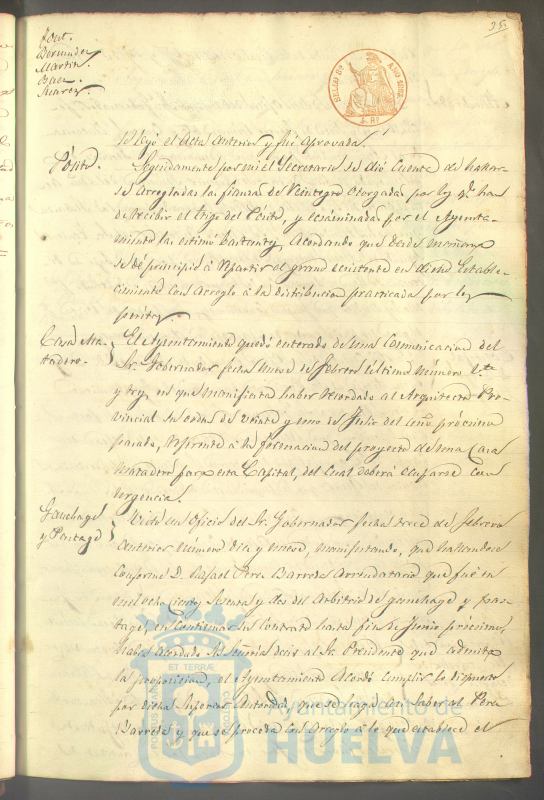 35.
Font.
Bermudez
Martin.
Baez.
Suarez.
SELLO 8º AÑO 1863
4 Rs
Se leyó el acta anterior y fué aprovada.
Pósito.
Seguidamente por mi el Secretario se dió cuenta de hallar-
se arregladas las fianzas de reintegro otorgadas por los qe. han
de recibir el trigo del Pósito, y ecsaminadas por el Ayunta-
miento las estimó bastantes, acordando que desde mañana
se dé principio á repartir el grano ecsistente en dicho Estable-
cimiento con arreglo á la distribucion practicada por los
peritos.
Casa Ma-
tadero.
El Ayuntamiento quedó enterado de una comunicacion del
Sr. Gobernador fecha nueve de Febrero último número
y tres, en que manifiesta haber recordado al Arquitecto Pro-
vincial su orden de veinte y uno de Julio del año próximo
pasado, referente á la formacion del proyecto de una Casa
Matadero para esta Capital, del cual deberá ocuparse con
urgencia.
Ganchage
y Pontage
Visto un oficio del Sr. Gobernador fecha trece de Febrero
anterior número diez y nueve, manifestando, que hallandose
conforme D. Rafael Perez Barreda arrendatario que fué en
mil ochocientos sesenta y dos del arbitrio de ganchage y pon-
tage, en continuar su contrato hasta fin de Junio próximo,
habia acordado Su Señoria decir al Sr. Presidente que admita
la proposicion, el Ayuntamiento acordó cumplir lo dispuesto
por dicha Superior Autoridad, que se haga saber al Perez
Barreda y que se proceda con arreglo á lo que establece el
PORTUS MARIS ET TERRAE CUSTODIA
Ayuntamiento de
HUELVA